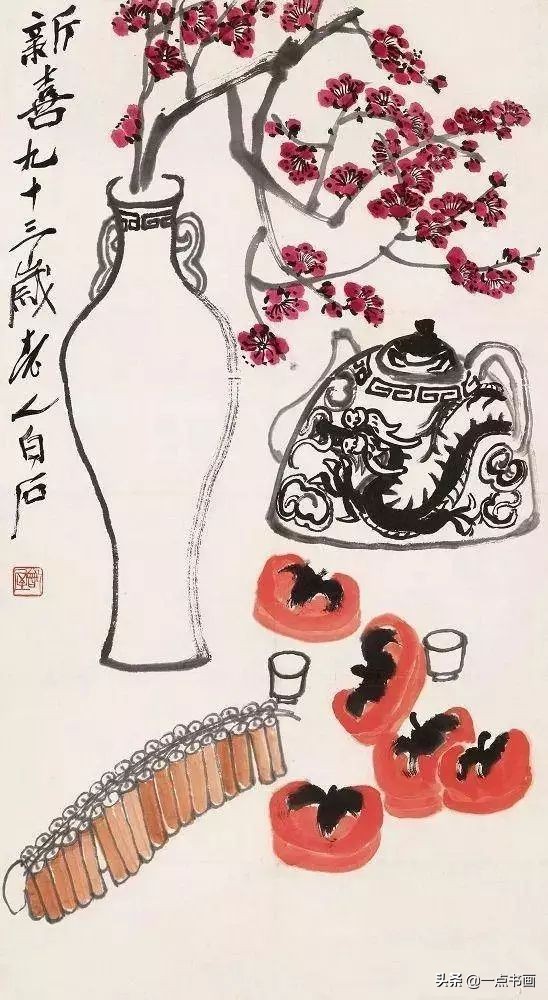 新喜九十三歲老人白石
头条 @一点书画